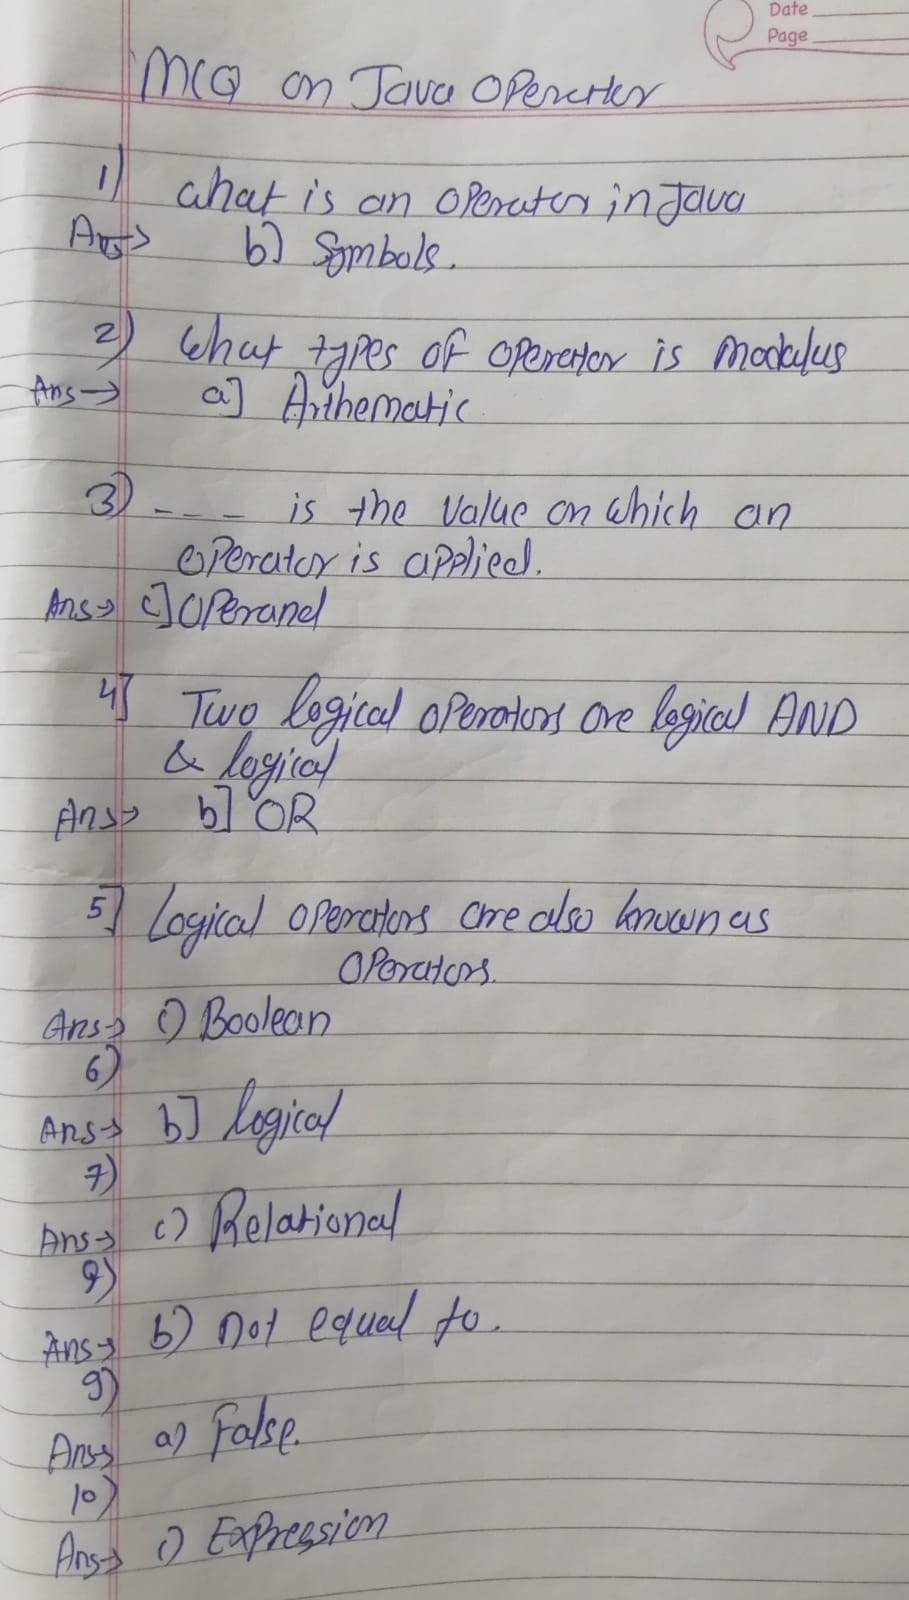 Date
Page
MCQ on Java Operator
1) What is an operator in Java
Ans→ b] Symbols.
2) What types of operator is modulus
Ans→ a] Arithematic
3) ---- is the value on which an
operator is applied.
Ans→ c] Operand
4] Two logical operators are logical AND
& logical
Ans→ b] OR
5] Logical operators are also known as
operators.
Ans→ c) Boolean
6)
Ans→ b] logical
7)
Ans→ c) Relational
8)
Ans→ b) not equal to.
9)
Ans→ a) False.
10)
Ans→ c) Expression